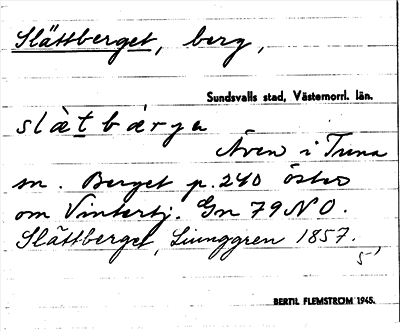 Slättberget, berg,
Sundsvalls stad, Västernorrl. län.
slàtbárja
Även i Tuna
sn. Berget p. 240 öster
om Vintertj. Gn 79 NO.
Slättberget, Ljunggren 1857.
BERTIL FLEMSTRÖM 1945.